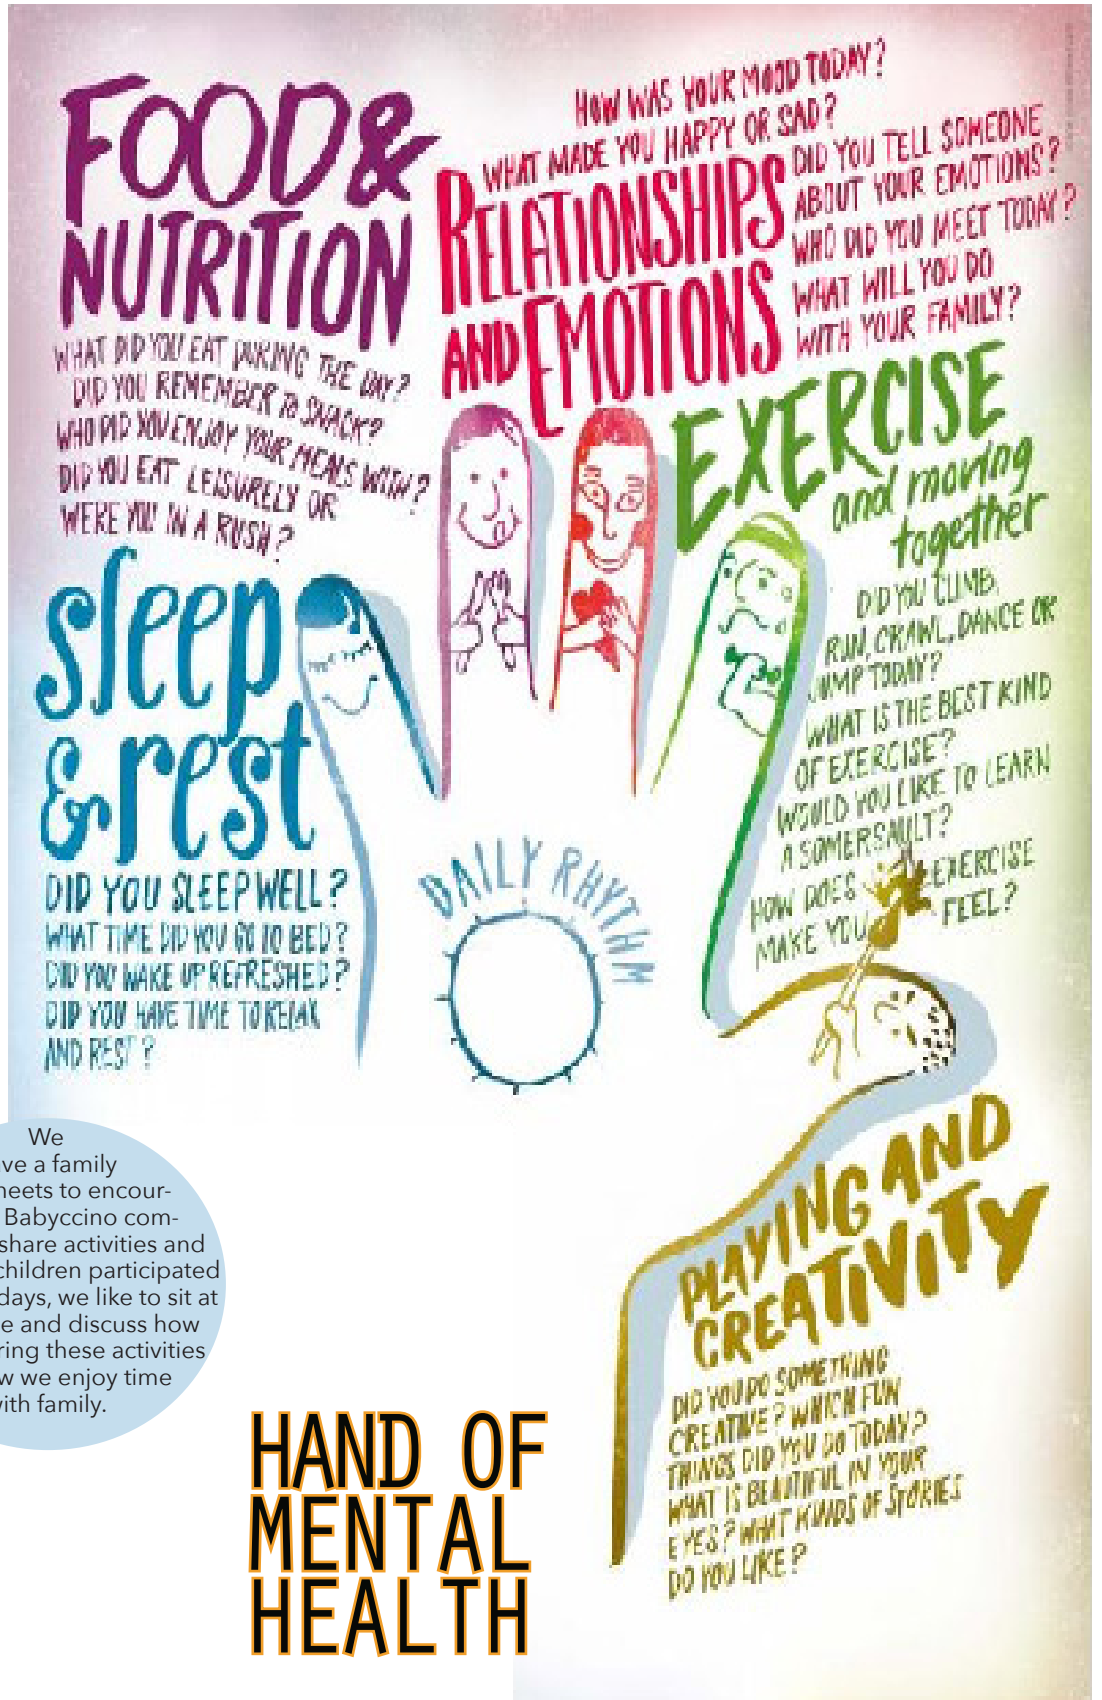 FOOD &
NUTRITION
WHAT DID YOU EAT DURING THE DAY?
DID YOU REMEMBER TO SNACK?
WHO DID YOU ENJOY YOUR MEALS WITH?
DID YOU EAT LEISURELY OR
WERE YOU IN A RUSH?
HOW WAS YOUR MOOD TODAY?
WHAT MADE YOU HAPPY OR SAD?
RELATIONSHIPS
AND EMOTIONS
DID YOU TELL SOMEONE
ABOUT YOUR EMOTIONS?
WHO DID YOU MEET TODAY?
WHAT WILL YOU DO
WITH YOUR FAMILY?
EXERCISE
and moving
together
DID YOU CLIMB,
RUN, CRAWL, DANCE OR
JUMP TODAY?
WHAT IS THE BEST KIND
OF EXERCISE?
WOULD YOU LIKE TO LEARN
A SOMERSAULT?
HOW DOES EXERCISE
MAKE YOU FEEL?
sleep
& rest
DID YOU SLEEP WELL?
WHAT TIME DID YOU GO TO BED?
DID YOU WAKE UP REFRESHED?
DID YOU HAVE TIME TO RELAX
AND REST?
DAILY RHYTHM
PLAYING AND
CREATIVITY
DID YOU DO SOMETHING
CREATIVE? WHICH FUN
THINGS DID YOU DO TODAY?
WHAT IS BEAUTIFUL IN YOUR
EYES? WHAT KINDS OF STORIES
DO YOU LIKE?
We
ve a family
neets to encour-
Babyccino com-
share activities and
children participated
days, we like to sit at
e and discuss how
ring these activities
w we enjoy time
with family.
HAND OF
MENTAL
HEALTH